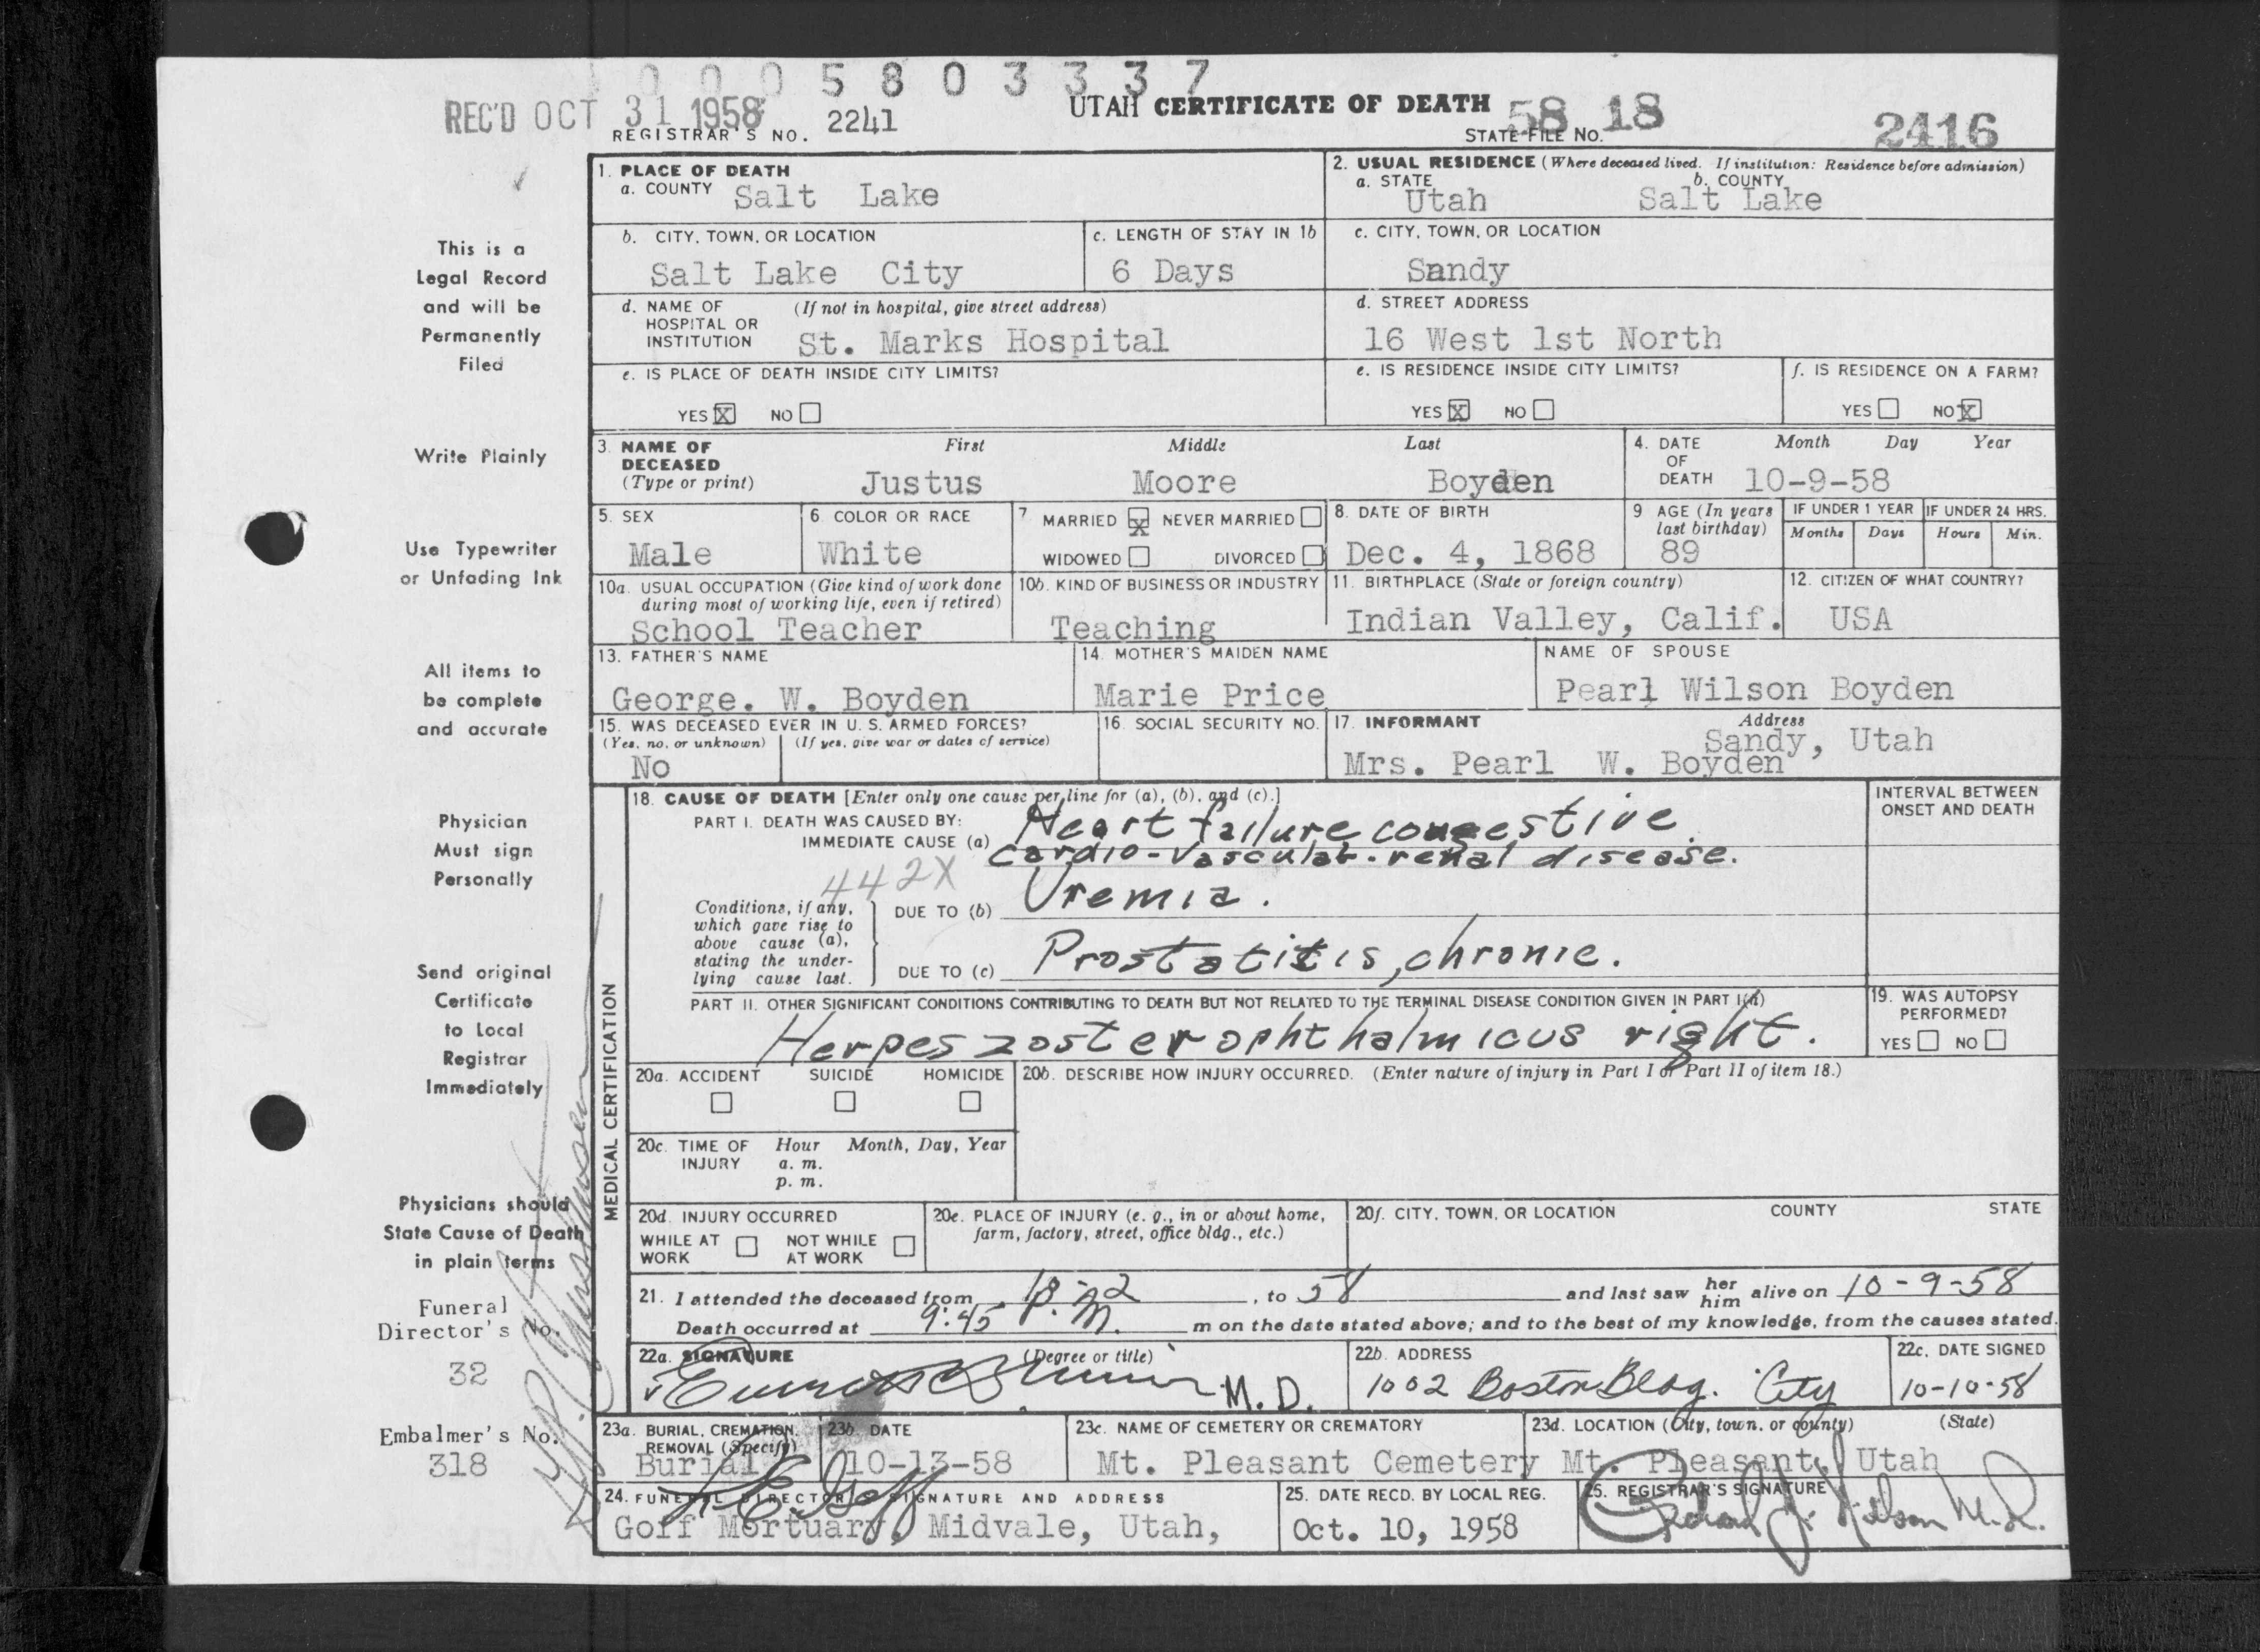 0 0 0 5 8 0 3 3 3 7
REC'D OCT 31 1958
REGISTRAR'S NO. 2241
UTAH CERTIFICATE OF DEATH
STATE FILE NO. 58 18 2416
This is a
Legal Record
and will be
Permanently
Filed
Write Plainly
Use Typewriter
or Unfading Ink
All items to
be complete
and accurate
Physician
Must sign
Personally
Send original
Certificate
to Local
Registrar
Immediately
Physicians should
State Cause of Death
in plain terms
Funeral
Director's No.
32
Embalmer's No.
318
1. PLACE OF DEATH
a. COUNTY Salt Lake
2. USUAL RESIDENCE (Where deceased lived. If institution: Residence before admission)
a. STATE Utah b. COUNTY Salt Lake
b. CITY, TOWN, OR LOCATION
Salt Lake City
c. LENGTH OF STAY IN 1b
6 Days
c. CITY, TOWN, OR LOCATION
Sandy
d. NAME OF HOSPITAL OR INSTITUTION (If not in hospital, give street address)
St. Marks Hospital
d. STREET ADDRESS
16 West 1st North
e. IS PLACE OF DEATH INSIDE CITY LIMITS?
YES X NO
e. IS RESIDENCE INSIDE CITY LIMITS?
YES X NO
f. IS RESIDENCE ON A FARM?
YES NO X
3. NAME OF DECEASED (Type or print)
First Middle Last
Justus Moore Boyden
4. DATE OF DEATH Month Day Year
10-9-58
5. SEX
Male
6. COLOR OR RACE
White
7 MARRIED X NEVER MARRIED
WIDOWED DIVORCED
8. DATE OF BIRTH
Dec. 4, 1868
9 AGE (In years last birthday)
89
IF UNDER 1 YEAR IF UNDER 24 HRS.
Months Days Hours Min.
10a. USUAL OCCUPATION (Give kind of work done during most of working life, even if retired)
School Teacher
10b. KIND OF BUSINESS OR INDUSTRY
Teaching
11. BIRTHPLACE (State or foreign country)
Indian Valley, Calif.
12. CITIZEN OF WHAT COUNTRY?
USA
13. FATHER'S NAME
George. W. Boyden
14. MOTHER'S MAIDEN NAME
Marie Price
NAME OF SPOUSE
Pearl Wilson Boyden
15. WAS DECEASED EVER IN U. S. ARMED FORCES?
(Yes, no, or unknown) (If yes, give war or dates of service)
No
16. SOCIAL SECURITY NO.
17. INFORMANT Address
Sandy, Utah
Mrs. Pearl W. Boyden
MEDICAL CERTIFICATION
18. CAUSE OF DEATH [Enter only one cause per line for (a), (b), and (c).]
INTERVAL BETWEEN ONSET AND DEATH
PART I. DEATH WAS CAUSED BY:
IMMEDIATE CAUSE (a) Heart failure congestive.
cardio-vascular-renal disease.
442X
Conditions, if any, which gave rise to above cause (a), stating the underlying cause last.
DUE TO (b) Uremia.
DUE TO (c) Prostatitis, chronic.
PART II. OTHER SIGNIFICANT CONDITIONS CONTRIBUTING TO DEATH BUT NOT RELATED TO THE TERMINAL DISEASE CONDITION GIVEN IN PART I(a)
Herpes zoster ophthalmicus right.
19. WAS AUTOPSY PERFORMED?
YES NO
20a. ACCIDENT SUICIDE HOMICIDE
20b. DESCRIBE HOW INJURY OCCURRED. (Enter nature of injury in Part I or Part II of item 18.)
20c. TIME OF INJURY Hour Month, Day, Year
a. m.
p. m.
20d. INJURY OCCURRED
WHILE AT WORK NOT WHILE AT WORK
20e. PLACE OF INJURY (e. g., in or about home, farm, factory, street, office bldg., etc.)
20f. CITY, TOWN, OR LOCATION COUNTY STATE
21. I attended the deceased from , to 58 and last saw her him alive on 10-9-58
Death occurred at 9:45 P. M. m on the date stated above; and to the best of my knowledge, from the causes stated.
22a. SIGNATURE (Degree or title)
M.D.
22b. ADDRESS
1002 Boston Bldg. City
22c. DATE SIGNED
10-10-58
23a. BURIAL, CREMATION, REMOVAL (Specify)
Burial
23b. DATE
10-13-58
23c. NAME OF CEMETERY OR CREMATORY
Mt. Pleasant Cemetery
23d. LOCATION (City, town, or county) (State)
Mt. Pleasant, Utah
24. FUNERAL DIRECTOR'S SIGNATURE AND ADDRESS
Goff Mortuary, Midvale, Utah,
25. DATE RECD. BY LOCAL REG.
Oct. 10, 1958
26. REGISTRAR'S SIGNATURE